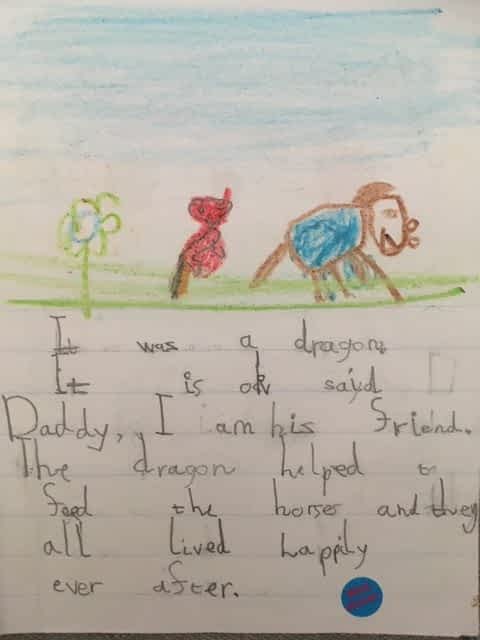 It was a dragon.
It is ok said
Daddy, I am his friend.
The dragon helped to
feed the horse and they
all lived happily
ever after.